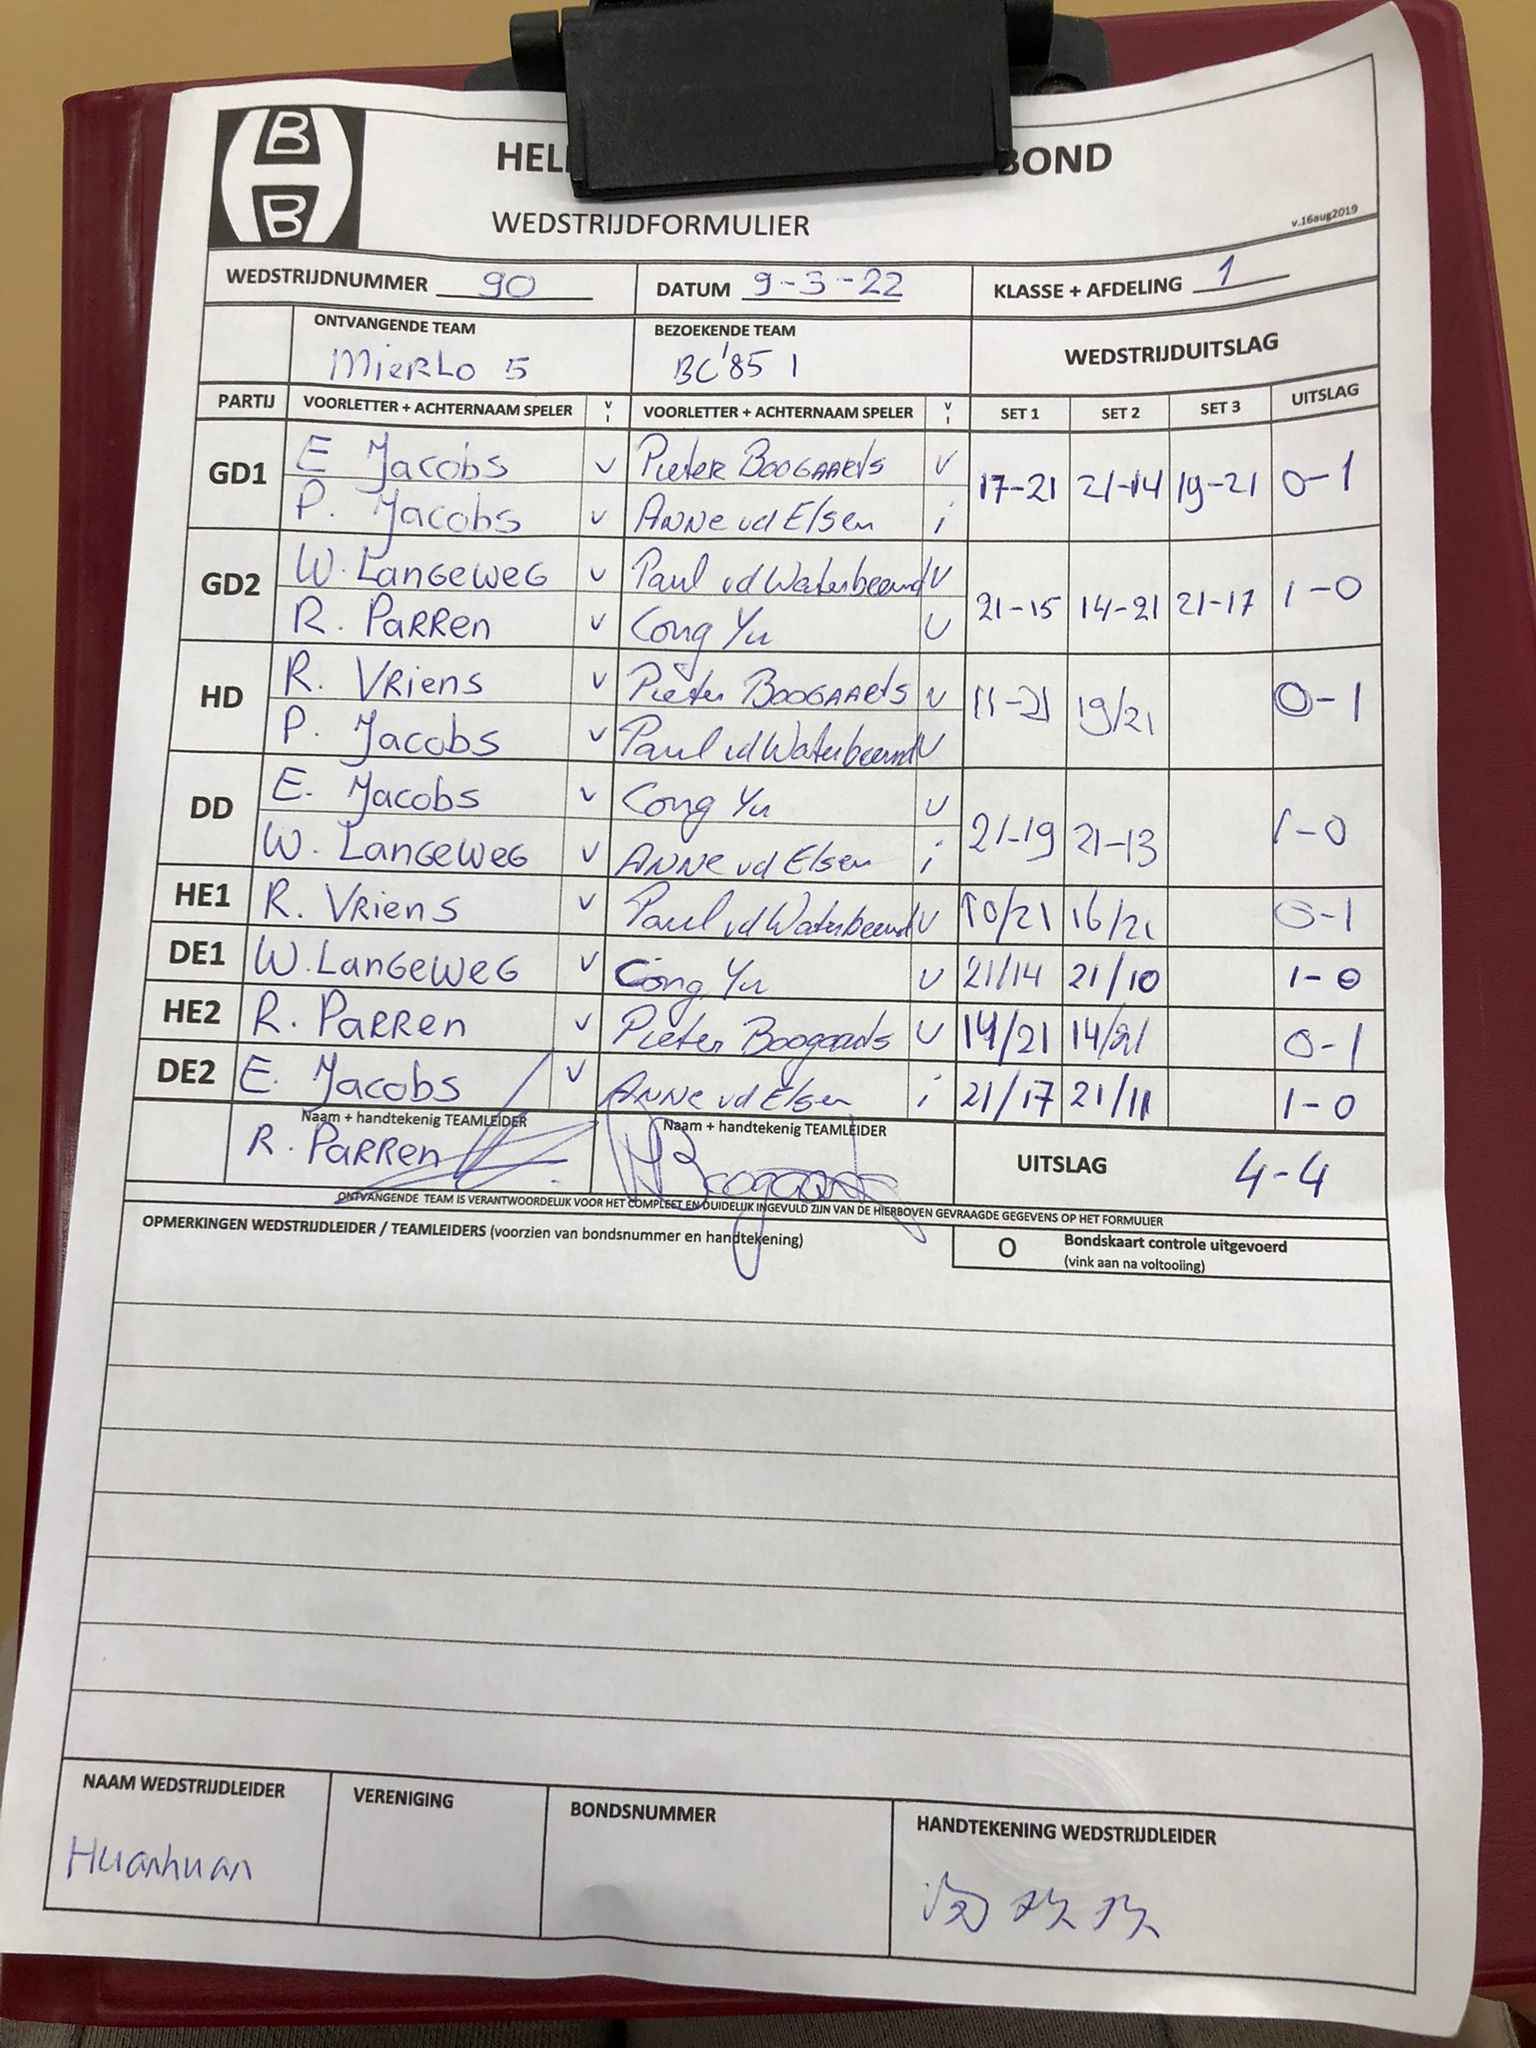 B
B
HEL BOND
WEDSTRIJDFORMULIER
v.16aug2019
WEDSTRIJDNUMMER 90 DATUM 9-3-22 KLASSE + AFDELING 1
ONTVANGENDE TEAM BEZOEKENDE TEAM WEDSTRIJDUITSLAG
MIERLO 5 BC'85 1
PARTIJ VOORLETTER + ACHTERNAAM SPELER V I VOORLETTER + ACHTERNAAM SPELER V I SET 1 SET 2 SET 3 UITSLAG
GD1 E Jacobs v Pieter Boogaarts v 17-21 21-14 19-21 0-1
P. Jacobs v Anne vd Elsen i
GD2 W. Langeweg v Paul vd Waterbeemd v 21-15 14-21 21-17 1-0
R. Parren v Cong Yu v
HD R. Vriens v Pieter Boogaarts v 11-21 19/21 0-1
P. Jacobs v Paul vd Waterbeemd v
DD E. Jacobs v Cong Yu v 21-19 21-13 1-0
W. Langeweg v Anne vd Elsen i
HE1 R. Vriens v Paul vd Waterbeemd v 10/21 16/21 0-1
DE1 W. Langeweg v Cong Yu v 21/14 21/10 1-0
HE2 R. Parren v Pieter Boogaarts v 14/21 0-1
DE2 E. Jacobs v Anne vd Elsen i 21/17 21/11 1-0
Naam + handtekenig TEAMLEIDER Naam + handtekenig TEAMLEIDER
R. Parren Boogaarts UITSLAG 4-4
ONTVANGENDE TEAM IS VERANTWOORDELIJK VOOR HET COMPLEET EN DUIDELIJK INGEVULD ZIJN VAN DE HIERBOVEN GEVRAAGDE GEGEVENS OP HET FORMULIER
OPMERKINGEN WEDSTRIJDLEIDER / TEAMLEIDERS (voorzien van bondsnummer en handtekening)
O Bondskaart controle uitgevoerd
(vink aan na voltooiing)
NAAM WEDSTRIJDLEIDER VERENIGING BONDSNUMMER HANDTEKENING WEDSTRIJDLEIDER
Huanhuan